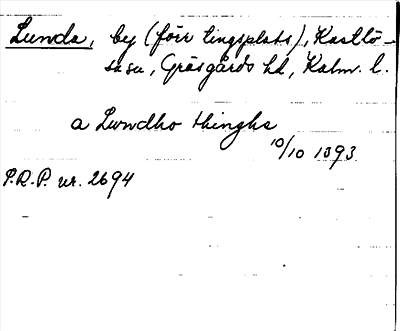 Lunda, by (förr tingsplats), Kastlö-
sa sn, Gräsgårds hd, Kalm. l.
a Lundho thinghs
10/10 1393
P.R.P. nr. 2694